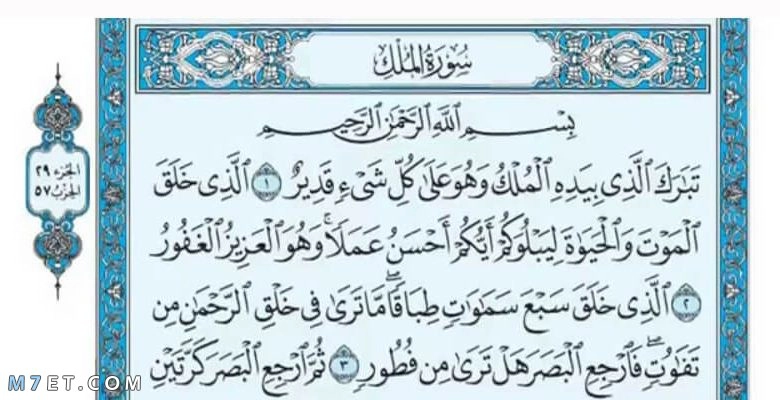 سُورَةُ المُلْكِ
بِسْمِ اللَّهِ الرَّحْمَٰنِ الرَّحِيمِ
تَبَٰرَكَ ٱلَّذِي بِيَدِهِ ٱلْمُلْكُ وَهُوَ عَلَىٰ كُلِّ شَيْءٍ قَدِيرٌ ١ ٱلَّذِي خَلَقَ
ٱلْمَوْتَ وَٱلْحَيَوٰةَ لِيَبْلُوَكُمْ أَيُّكُمْ أَحْسَنُ عَمَلًاۚ وَهُوَ ٱلْعَزِيزُ ٱلْغَفُورُ
٢ ٱلَّذِي خَلَقَ سَبْعَ سَمَٰوَٰتٍ طِبَاقًاۖ مَّا تَرَىٰ فِي خَلْقِ ٱلرَّحْمَٰنِ مِن
تَفَٰوُتٍۖ فَٱرْجِعِ ٱلْبَصَرَ هَلْ تَرَىٰ مِن فُطُورٍ ٣ ثُمَّ ٱرْجِعِ ٱلْبَصَرَ كَرَّتَيْنِ
الجزء ٢٩
الحزب ٥٧
M7ET.COM